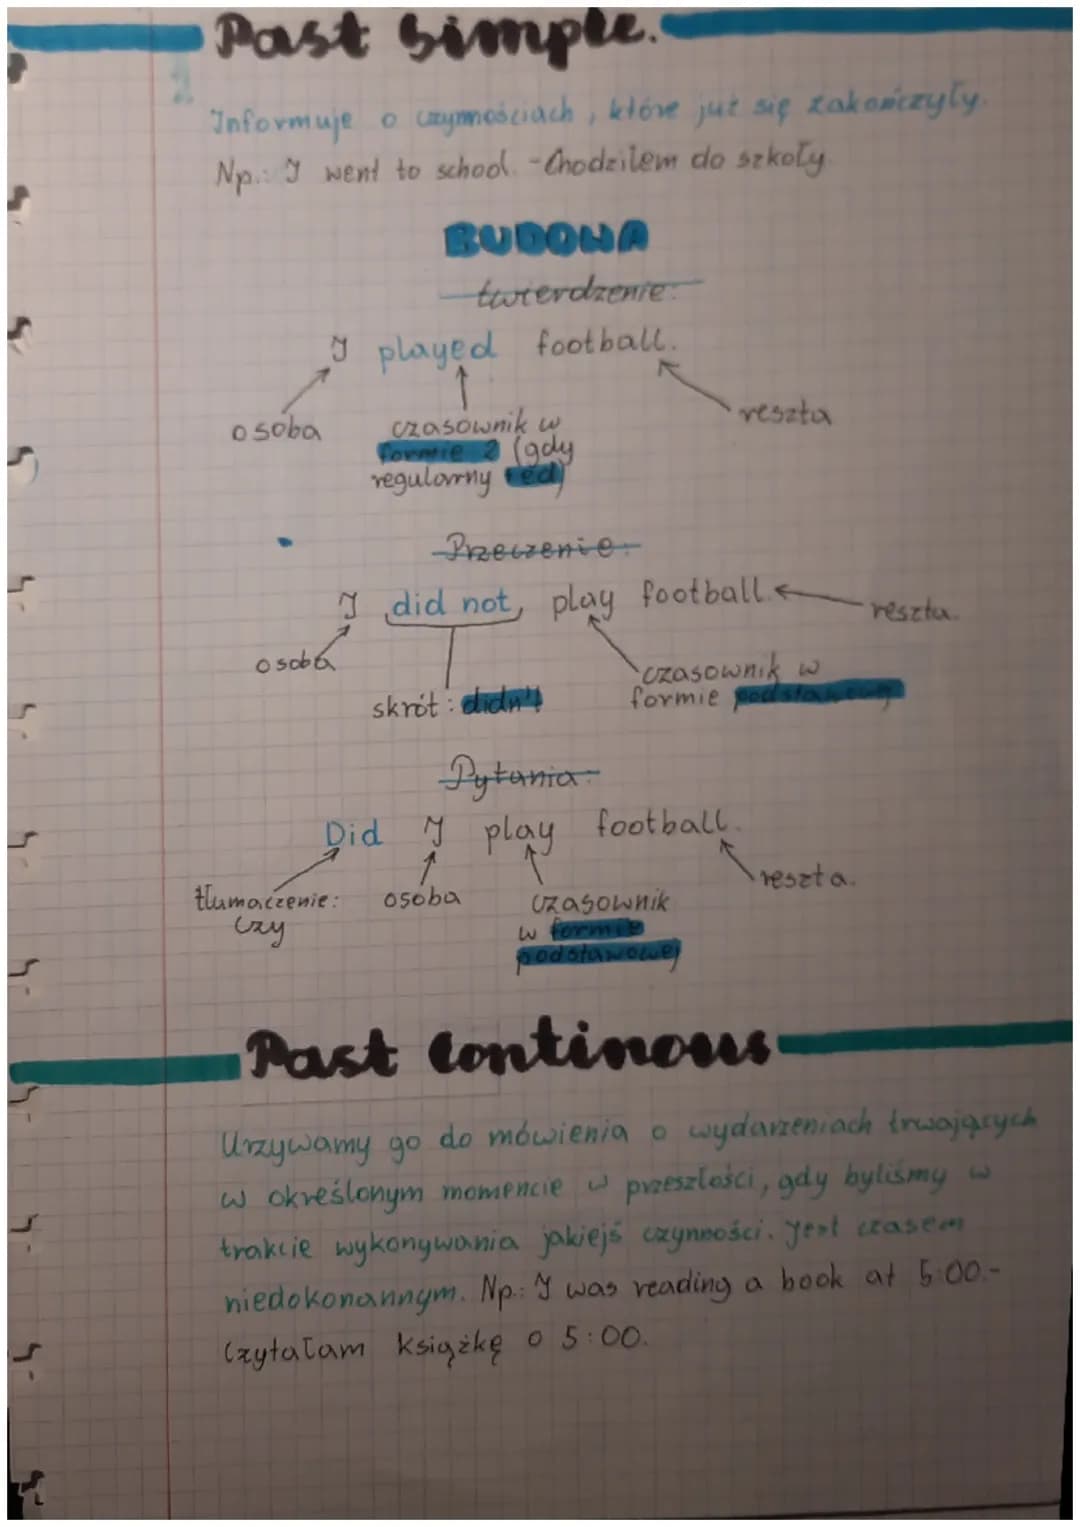 Past Simple.
Informuje o czynnościach, które już się zakończyły.
Np.: I went to school. - Chodziłem do szkoły.
BUDOWA
twierdzenie:
I played football.
osoba
czasownik w
formie 2 (gdy
regularny +ed)
reszta
Przeczenie:
I did not play football.
reszta.
osoba
skrót: didn't
czasownik w
formie podstawowej
Pytania:
Did I play football.
tłumaczenie:
czy
osoba
czasownik
w formie
podstawowej
reszta.
Past Continous
Urzywamy go do mówienia o wydarzeniach trwających
w określonym momencie w przeszłości, gdy byliśmy w
trakcie wykonywania jakiejś czynności. Jest czasem
niedokonannym. Np.: I was reading a book at 5:00.-
Czytałam książkę o 5:00.